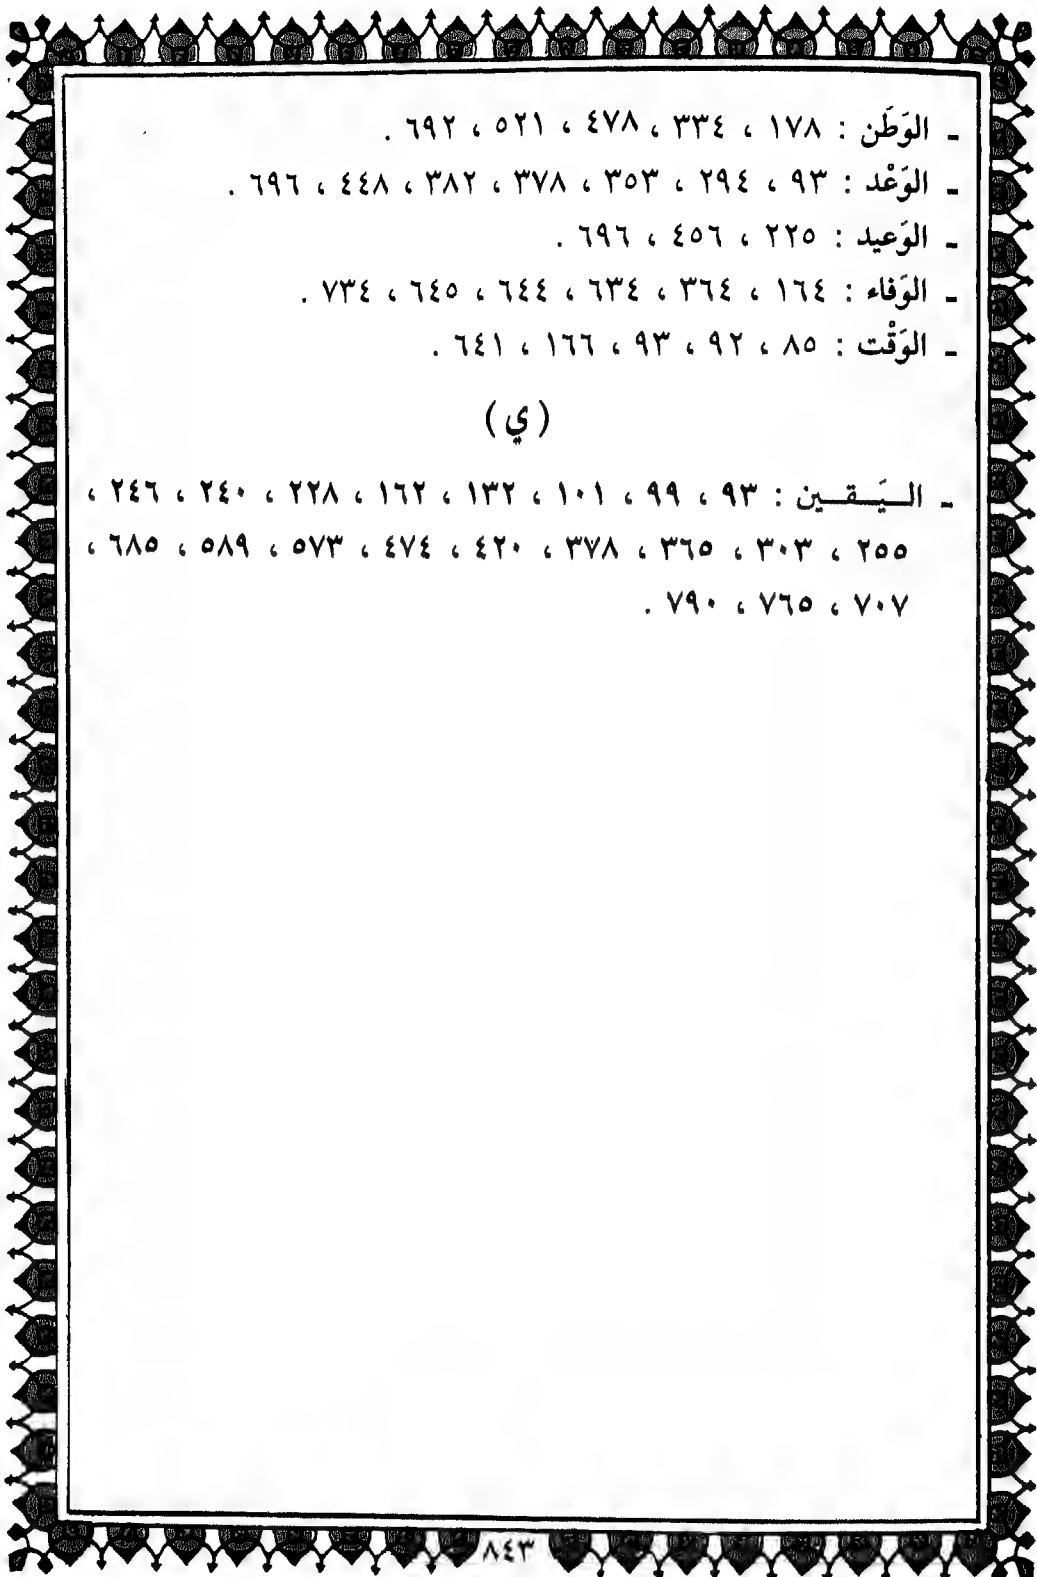 ـ الوَطَن : ١٧٨ ، ٣٣٤ ، ٤٧٨ ، ٥٢١ ، ٦٩٢ .
ـ الوَعْد : ٩٣ ، ٢٩٤ ، ٣٥٣ ، ٣٧٨ ، ٣٨٢ ، ٤٤٨ ، ٦٩٦ .
ـ الوَعيد : ٢٢٥ ، ٤٥٦ ، ٦٩٦ .
ـ الوَفاء : ١٦٤ ، ٣٦٤ ، ٦٣٤ ، ٦٤٤ ، ٦٤٥ ، ٧٣٤ .
ـ الوَقْت : ٨٥ ، ٩٢ ، ٩٣ ، ١٦٦ ، ٦٤١ .
( ي )
ـ الـــيَـــقـــين : ٩٣ ، ٩٩ ، ١٠١ ، ١٣٢ ، ١٦٢ ، ٢٢٨ ، ٢٤٠ ، ٢٤٦ ،
٢٥٥ ، ٣٠٣ ، ٣٦٥ ، ٣٧٨ ، ٤٢٠ ، ٤٧٤ ، ٥٧٣ ، ٥٨٩ ، ٦٨٥ ،
٧٠٧ ، ٧٦٥ ، ٧٩٠ .
٨٤٣